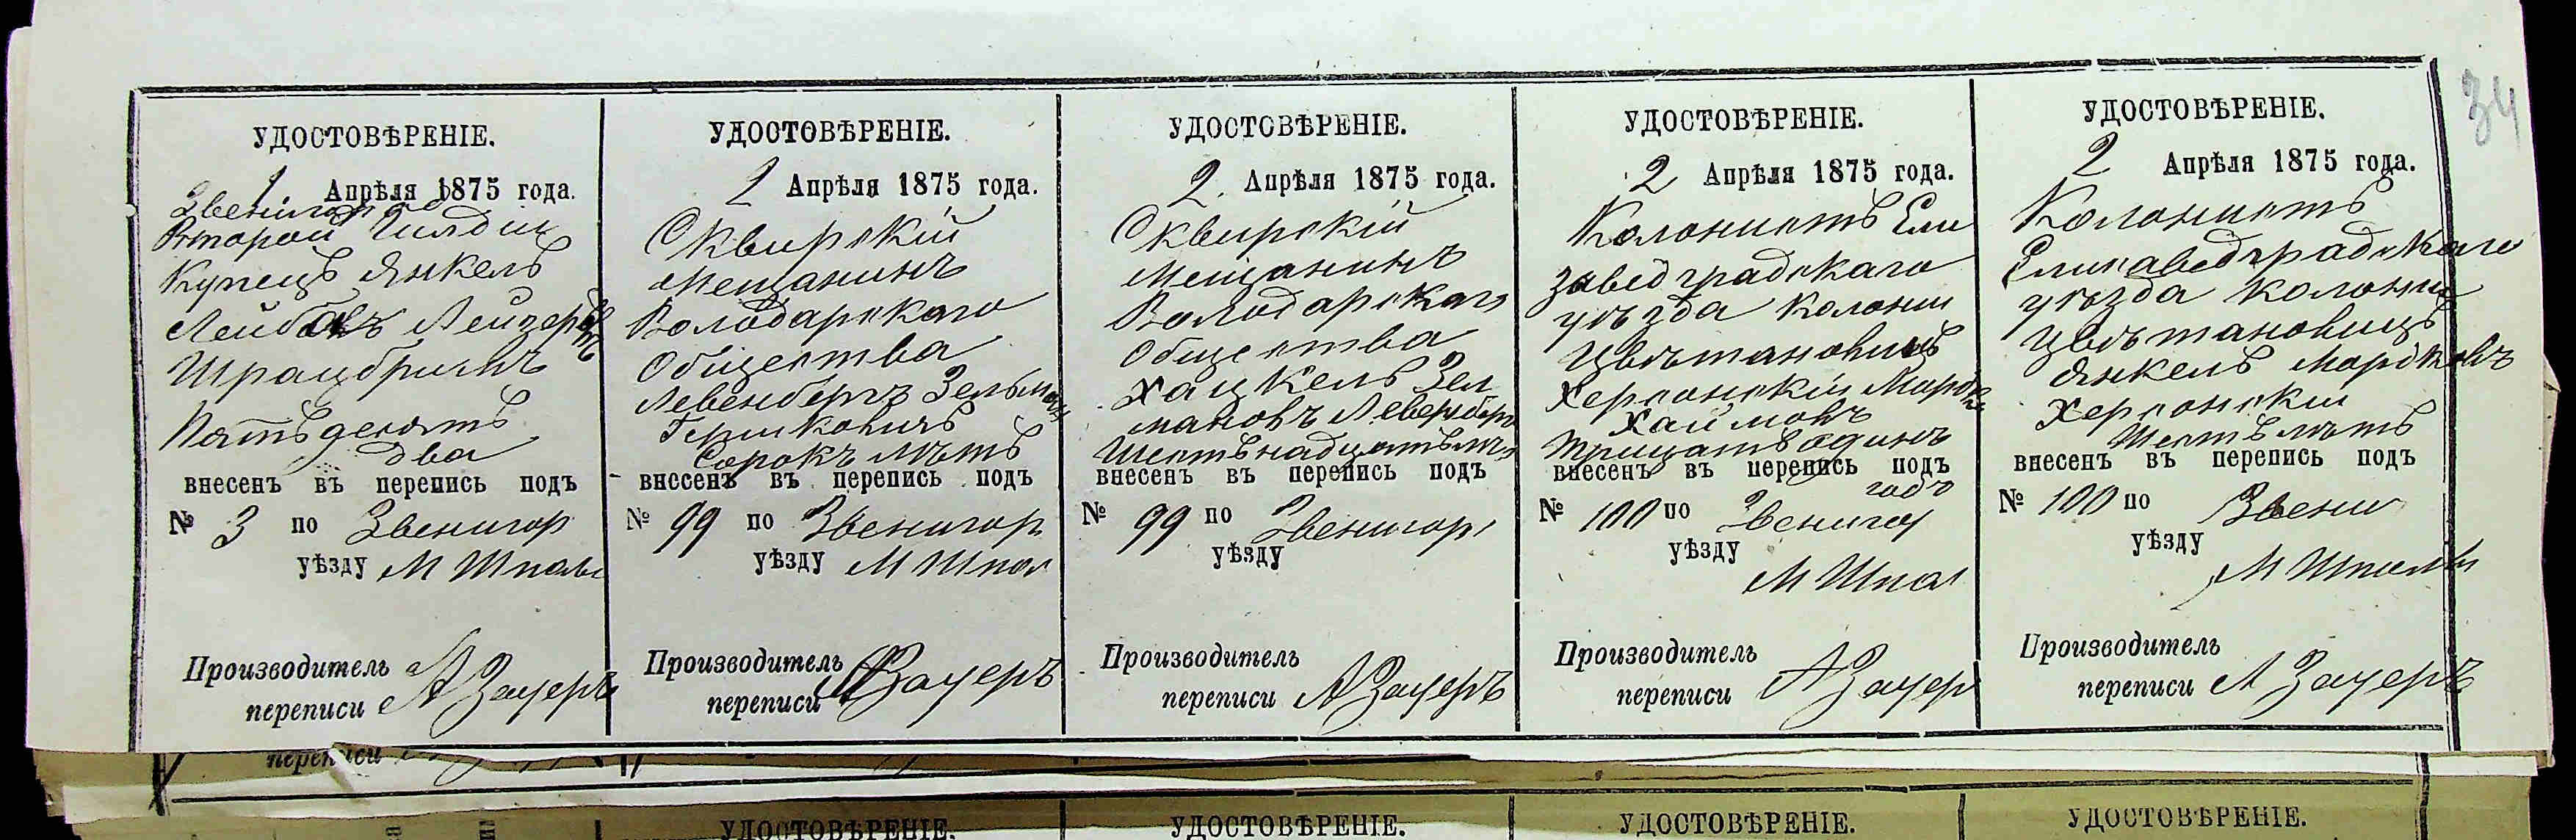 34
УДОСТОВѢРЕНІЕ.
1 Апрѣля 1875 года.
Второй Гилдіи
Купецъ Янкель
Лейбовъ
Пятьдесятъ
два
внесенъ въ перепись подъ
№ 3 по Звенигор
уѣзду М Шполы
Производитель А Зауеръ
переписи
УДОСТОВѢРЕНІЕ.
2 Апрѣля 1875 года.
Сквирскій
Мещанинъ
Володарскаго
Общества
Левенбергъ Зельман
Гершковичъ
Сорокъ лѣтъ
внесенъ въ перепись подъ
№ 99 по Звенигор
уѣзду М Шпол
Производитель А Зауеръ
переписи
УДОСТОВѢРЕНІЕ.
2 Апрѣля 1875 года.
Сквирскій
Мещанинъ
Володарскаго
Общества
Хацкель Зел
мановъ Левенберг
Шестьнадцатьлѣт
внесенъ въ перепись подъ
№ 99 по Звенигор
уѣзду
Производитель
переписи А Зауеръ
УДОСТОВѢРЕНІЕ.
2 Апрѣля 1875 года.
Колонистъ Ели
заведградскаго
уѣзда Колоніи
Херсонскій Мордко
Хаймовъ
Трицать одинъ
внесенъ въ перепись подъ
годъ
№ 100 по Звениго
уѣзду
М Шпол
Производитель
переписи А Зауер
УДОСТОВѢРЕНІЕ.
2 Апрѣля 1875 года.
Колонистъ
Елисаведградскаго
уѣзда Колоніи
Янкель Мордковъ
Херсонскій
Шесть лѣтъ
внесенъ въ перепись подъ
№ 100 по Звени
уѣзду
М Шполы
Производитель
переписи А Зауеръ
переписи
УДОСТОВѢРЕНІЕ.
УДОСТОВѢРЕНІЕ.
УДОСТОВѢРЕНІЕ.
УДОСТОВѢРЕНІЕ.